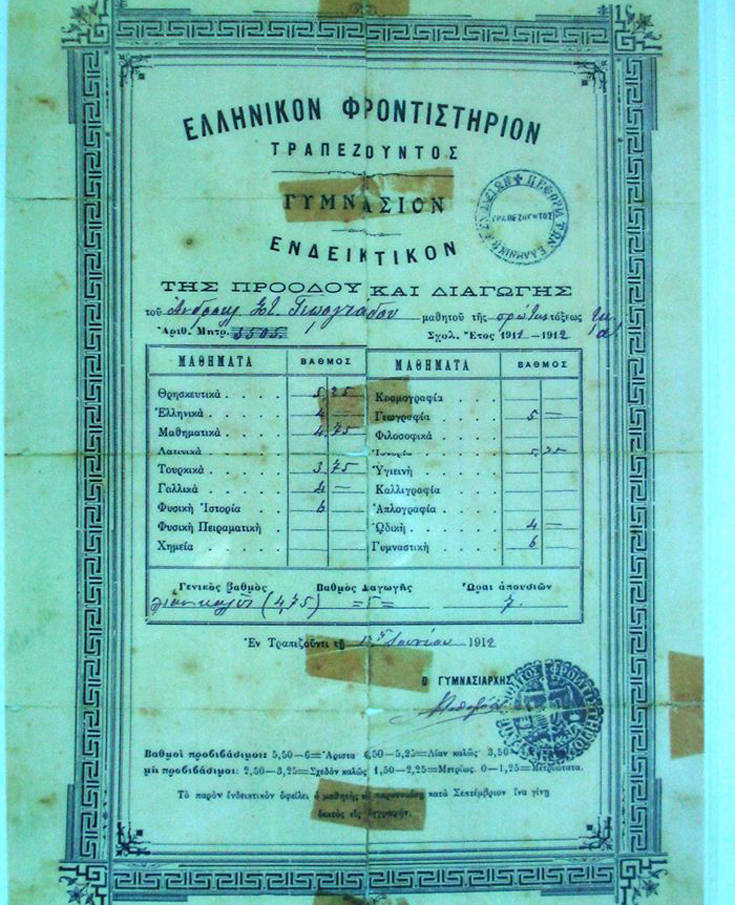 ΕΛΛΗΝΙΚΟΝ ΦΡΟΝΤΙΣΤΗΡΙΟΝ
ΤΡΑΠΕΖΟΥΝΤΟΣ
ΓΥΜΝΑΣΙΟΝ
ΤΡΑΠΕΖΟΥΝΤΟΣ
ΕΝΔΕΙΚΤΙΚΟΝ
ΤΗΣ ΠΡΟΟΔΟΥ ΚΑΙ ΔΙΑΓΩΓΗΣ
τοῦ Γεωργιάδου μαθητοῦ τῆς πρώτης τάξεως
Ἀριθ. Μητρ. 3505 Σχολ. Ἔτος 1911 –1912
ΜΑΘΗΜΑΤΑ ΒΑΘΜΟΣ ΜΑΘΗΜΑΤΑ ΒΑΘΜΟΣ
Θρησκευτικά 5,25 Κοσμογραφία
Ἑλληνικά 4 — Γεωγραφία 5 —
Μαθηματικά 4,75 Φιλοσοφικά
Λατινικά Ἱστορία 5,25
Τουρκικά 3,75 Ὑγιεινή
Γαλλικά 4 — Καλλιγραφία
Φυσική Ἱστορία 6 Ἁπλογραφία
Φυσική Πειραματική ᾨδική 4 —
Χημεία Γυμναστική 6
Γενικὸς βαθμὸς Βαθμὸς Διαγωγῆς Ὧραι ἀπουσιῶν
λίαν καλῶς (4,75) =5= 7
Ἐν Τραπεζοῦντι τῇ Ἰουνίου 1912
Ο ΓΥΜΝΑΣΙΑΡΧΗΣ
Βαθμοὶ προβιβάσιμοι: 5,50—6=Ἄριστα 4,50—5,25=Λίαν καλῶς 3,50
μὴ προβιβάσιμοι: 2,50—3,25=Σχεδὸν καλῶς 1,50—2,25=Μετρίως. 0—1,25=Μετριώτατα.
Τὸ παρὸν ἐνδεικτικὸν ὀφείλει ὁ μαθητὴς νὰ παρουσιάσῃ κατὰ Σεπτέμβριον ἵνα γίνῃ
δεκτὸς εἰς ἐγγραφήν.